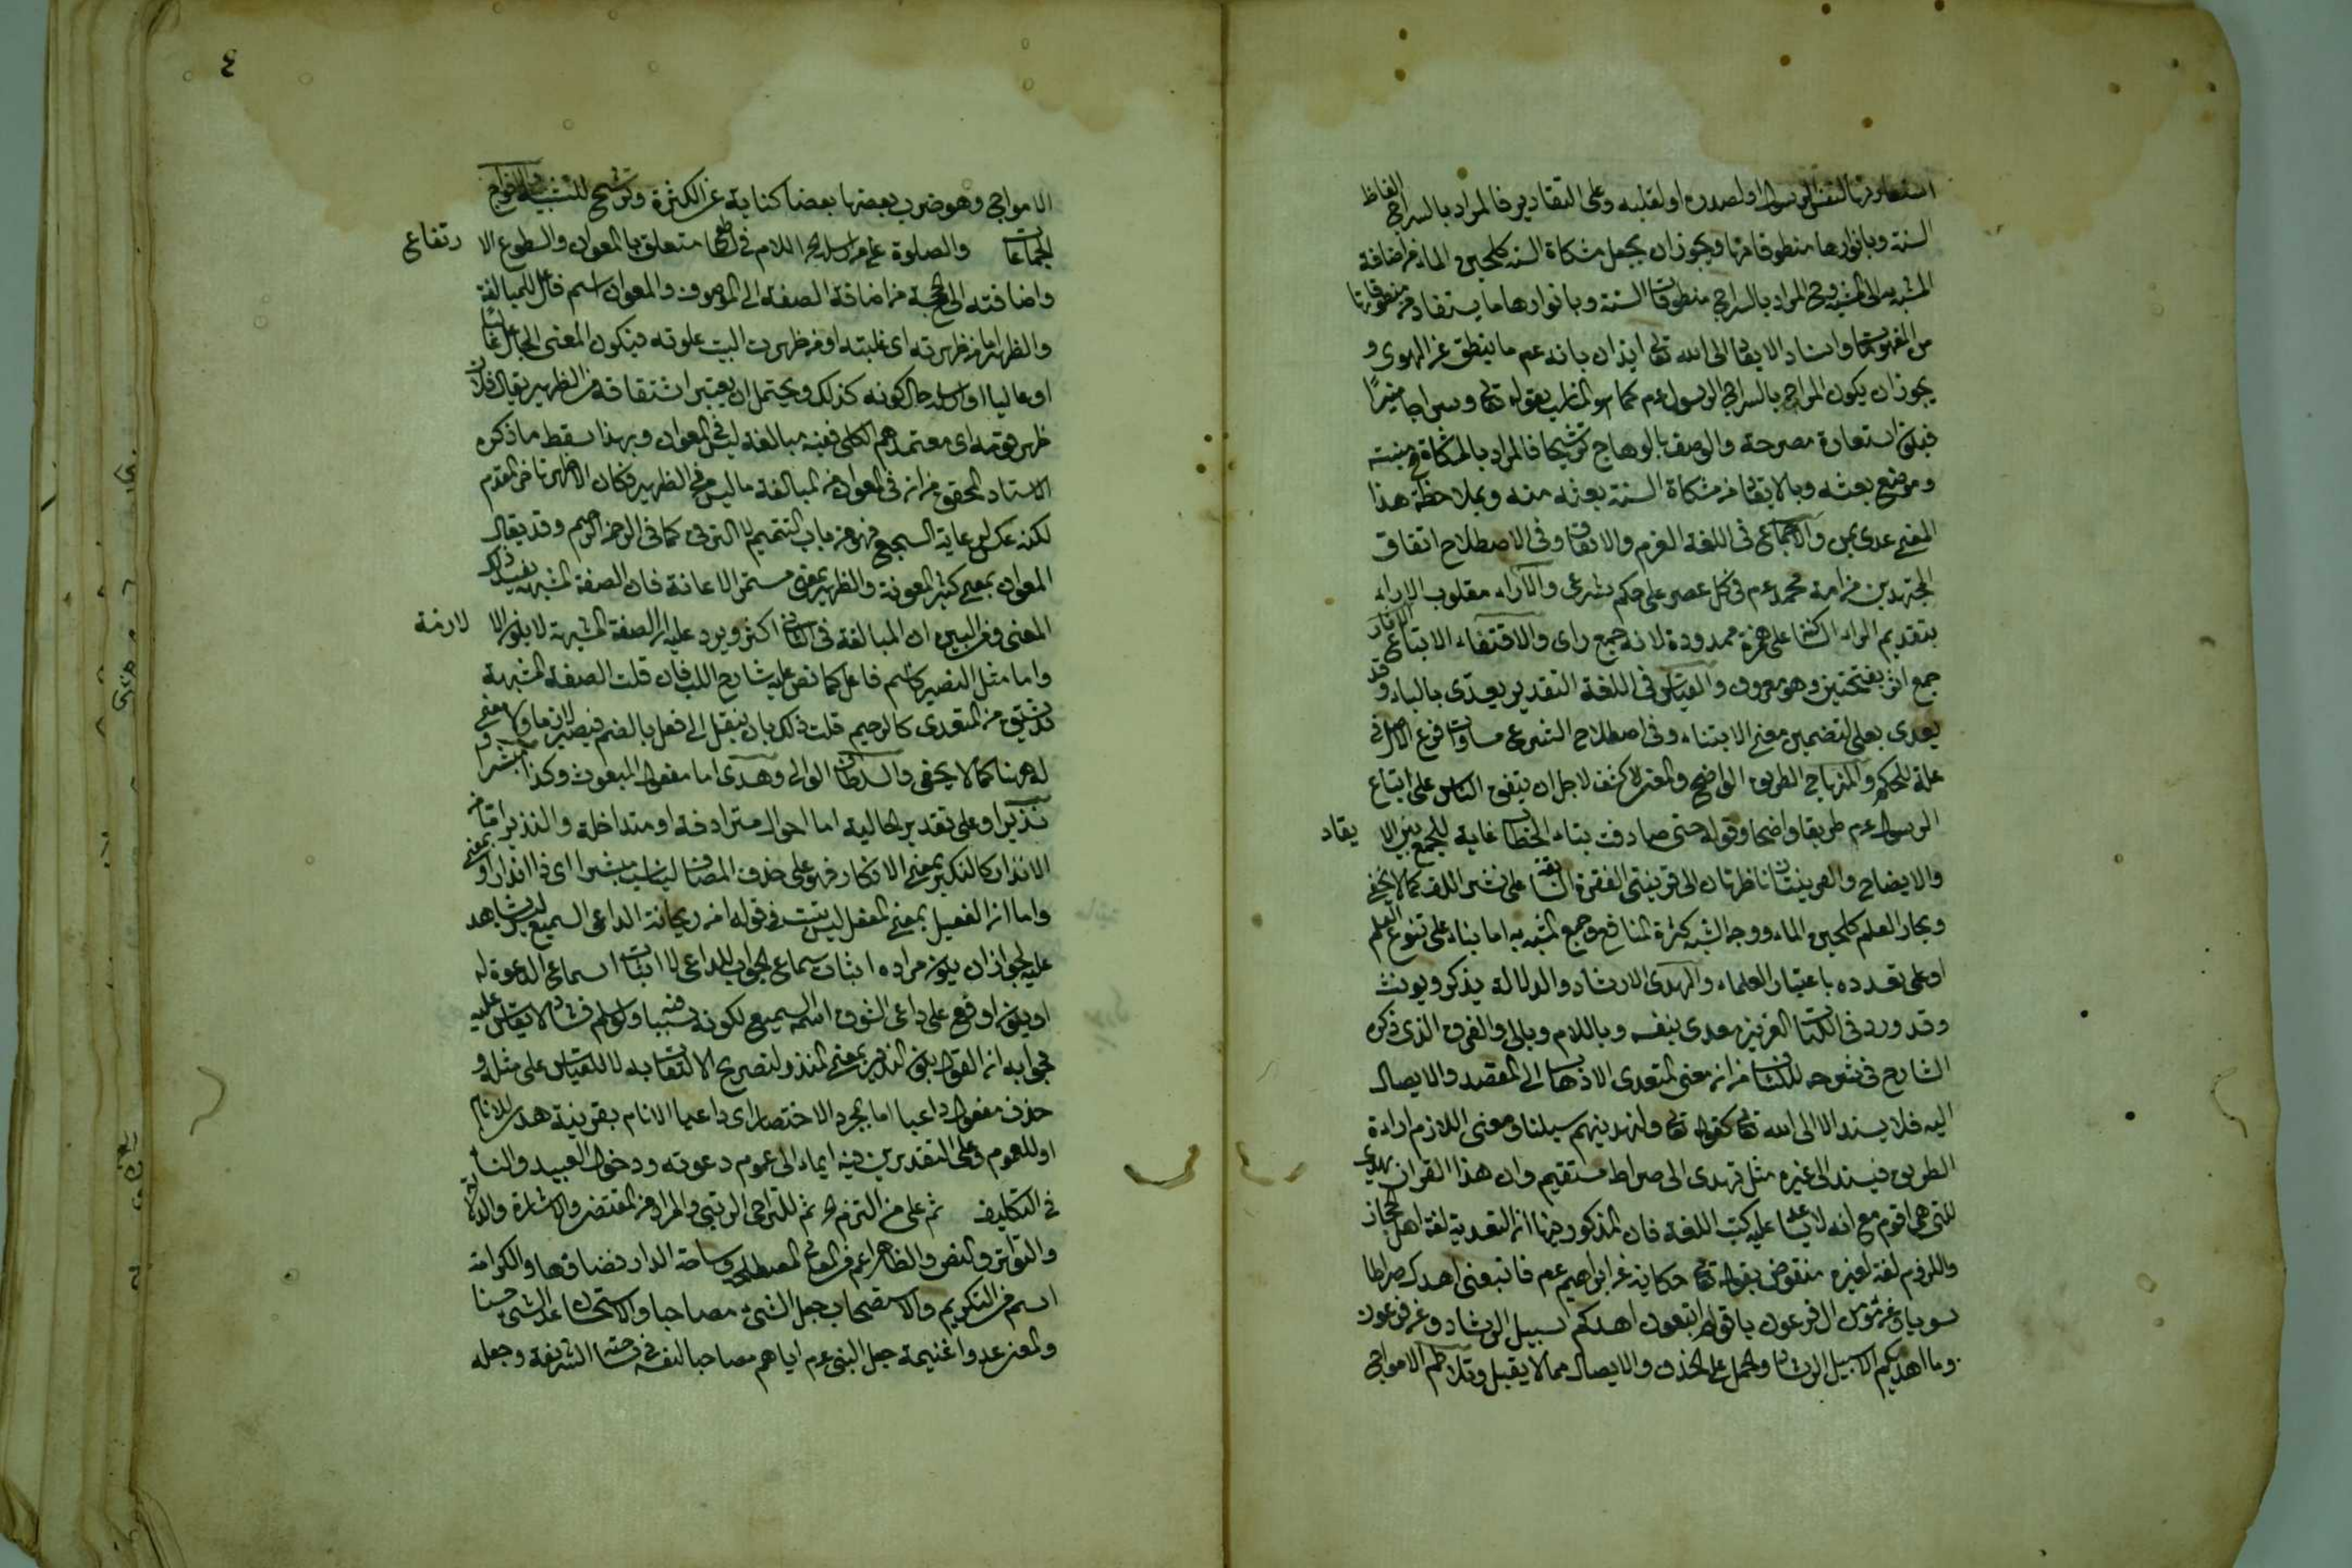 استعارتها لنفس الرسول او لصدره او لقلبه وعلى التقادير فالمراد بالسراج الفاظ
السنة وبانوارها منطوقاتها ويجوز ان يجعل مشكاة السنة كلجين الماء من اضافة
المشبه به الى المشبه وح المراد بالسراج منطوقات السنة وبانوارها ما يستفاد من منطوقاتها
من المفهومات واسناد الايقاد الى الله تعالى ايذان بانه عم ما ينطق عن الهوى و
يجوز ان يكون المراد بالسراج الرسول عم كما هو المناسب بقوله تعالى وسراجا منيرا
فيكون استعارة مصرحة والوصف بالوهاج ترشيحا فالمراد بالمشكاة ح منبته
وموضع بعثه وبالايقاد من مشكاة السنة بعثه منه وبملاحظة هذا
المعنى عدى بمن والاجماع فى اللغة العزم والاتفاق وفى الاصطلاح اتفاق
المجتهدين من امة محمد عم فى كل عصر على حكم شرعى والآراء مقلوب الارآء
بتقديم الراء الساكنة على همزة ممدودة لانه جمع راى والاقتفاء الاتباع والاثار
جمع اثر بفتحتين وهو معروف والقياس فى اللغة التقدير يعدى بالباء وقد
يعدى بعلى لتضمين معنى الابتناء وفى اصطلاح الشرع مساوات فرع لاصل فى
علة الحكم والمنهاج الطريق الواضح والمعنى لاكشف لاجل ان يتفق الناس على اتباع
الرسول عم طريقا واضحا وقوله حتى صادفت بتاء الخطاب غاية للجمع بين الا يقاد
والايضاح والقرينتان ناظرتان الى قرينتى الفقرة السابقة على نشر اللف كما لا يخفى
وبحار العلم كلجين الماء ووجه الشبه كثرة المنافع وجمع المشبه به اما بناء على تنوع العلم
او على تعدده باعتبار العلماء والهدى الارشاد والدلالة يذكر ويونث
وقد ورد فى الكتاب العزيز معدى بنفسه وباللام وبالى والفرق الذى ذكره
الشارح فى شرحه للكشاف من ان معنى المتعدى الاذهاب الى المقصد والايصال
اليه فلا يسند الا الى الله تعالى كقوله تعالى ولنهدينهم سبلنا ومعنى اللازم اراءة
الطريق فيسند الى غيره مثل تهدى الى صراط مستقيم وان هذا القران يهدى
للتى هى اقوم مع انه لا يساعد عليه كتب اللغة فان المذكور فيها ان التعدية لغة اهل الحجاز
واللزوم لغة لغيره منقوض بقوله تعالى حكاية عن ابراهيم عم فاتبعنى اهدك صراطا
سويا وعن مؤمن ال فرعون يا قوم اتبعون اهدكم سبيل الرشاد وعن فرعون
وما اهديكم الا سبيل الرشاد والحمل على الحذف والايصال مما لا يقبل وتلاطم الامواج
٤
الامواج وهو ضرب بعضها بعضا كناية عن الكثرة وترشيح للتشبيه والافواج
الجماعات والصلوة على من ارسله اللام فى متعلق بالمعوان والسطوع الا رتفاع
واضافته الى الحجة من اضافة الصفة الى الموصوف والمعوان اسم فاعل للمبالغة
والظهير اما من ظهرته اى غلبته او من ظهرت البيت علوته فيكون المعنى الحال غالبا
او عاليا او ارسله حال كونه كذلك ويحتمل ان يعتبر اشتقاقه من الظهير يقال فلان
ظهر قومه اى معتمدهم الكلى ففيه مبالغة ليست فى المعوان وبهذا سقط ما ذكره
الاستاد المحقق من ان فى المعوان من المبالغة ما ليس فى الظهير فكان الاظهر تاخر المقدم
لكنه عكس لرعاية السجع فهو من باب التتميم لا الترقى كما فى الرحمن الرحيم وقد يقال
المعوان بمعنى كثير المعونة والظهير بمعنى مستمر الاعانة فان الصفة المشبهة يفيد ذلك
المعنى ومن البين ان المبالغة فى الثانى اكثر ويرد عليه ان الصفة المشبهة لا يكون الا لازمة
واما مثل النصير كاسم فاعل كما نص عليه شارح اللب فان قلت الصفة المشبهة
قد يشتق من المتعدى كالرحيم قلت ذلك بان ينقل الى فعل بالضم فيصير لازما ولا معنى
له ههنا كما لا يخفى والسلطان الوالى وهدى اما مفعول المبعوث وكذا مبشرا و
نذيرا وعلى تقدير الحالية اما احوال مترادفة او متداخلة والنذير اما من
الانذار كالنكير بمعنى الانكار فهو على حذف المضاف ليناسب مبشرا اى ذا انذار او بمعنى
واما ان الفعيل بمعنى المفعل ليس يثبت فى قوله امن ريحانة الداعى السميع ليس بشاهد
عليه لجواز ان يكون مراده اثبات سماع الجواب للداعى لا اثبات اسماع الدعوة له
او يكون اوقع على داعى الشوق اسم السميع لكونه سببا فيه ولو سلم فشاذ لا يقاس عليه
فجوابه ان القول بكون النذير بمعنى المنذر لتصريح الثقات به لا للقياس على مثله و
حذف مفعول داعيا اما لمجرد الاختصار اى داعيا الانام بقرينة هدى للانام
او للعموم وعلى التقديرين فيه ايماء الى عموم دعوته ودخول العبيد والنساء
فى التكليف ثم على من التزم ثم للتراخى الرتبى والمراد من المقتضى والاشارة والدلالة
والتواتر والنص والظاهر اعم من المعانى المصطلحة وساحة الدار فضاؤها والكرامة
اسم من التكريم والاستصحاب جعل الشىء مصاحبا والاستحسان عد الشىء حسنا
والمعنى عدوا غنيمة جعل النبى عم اياهم مصاحبا لنفسه فى ساحته الشريفة وجعله